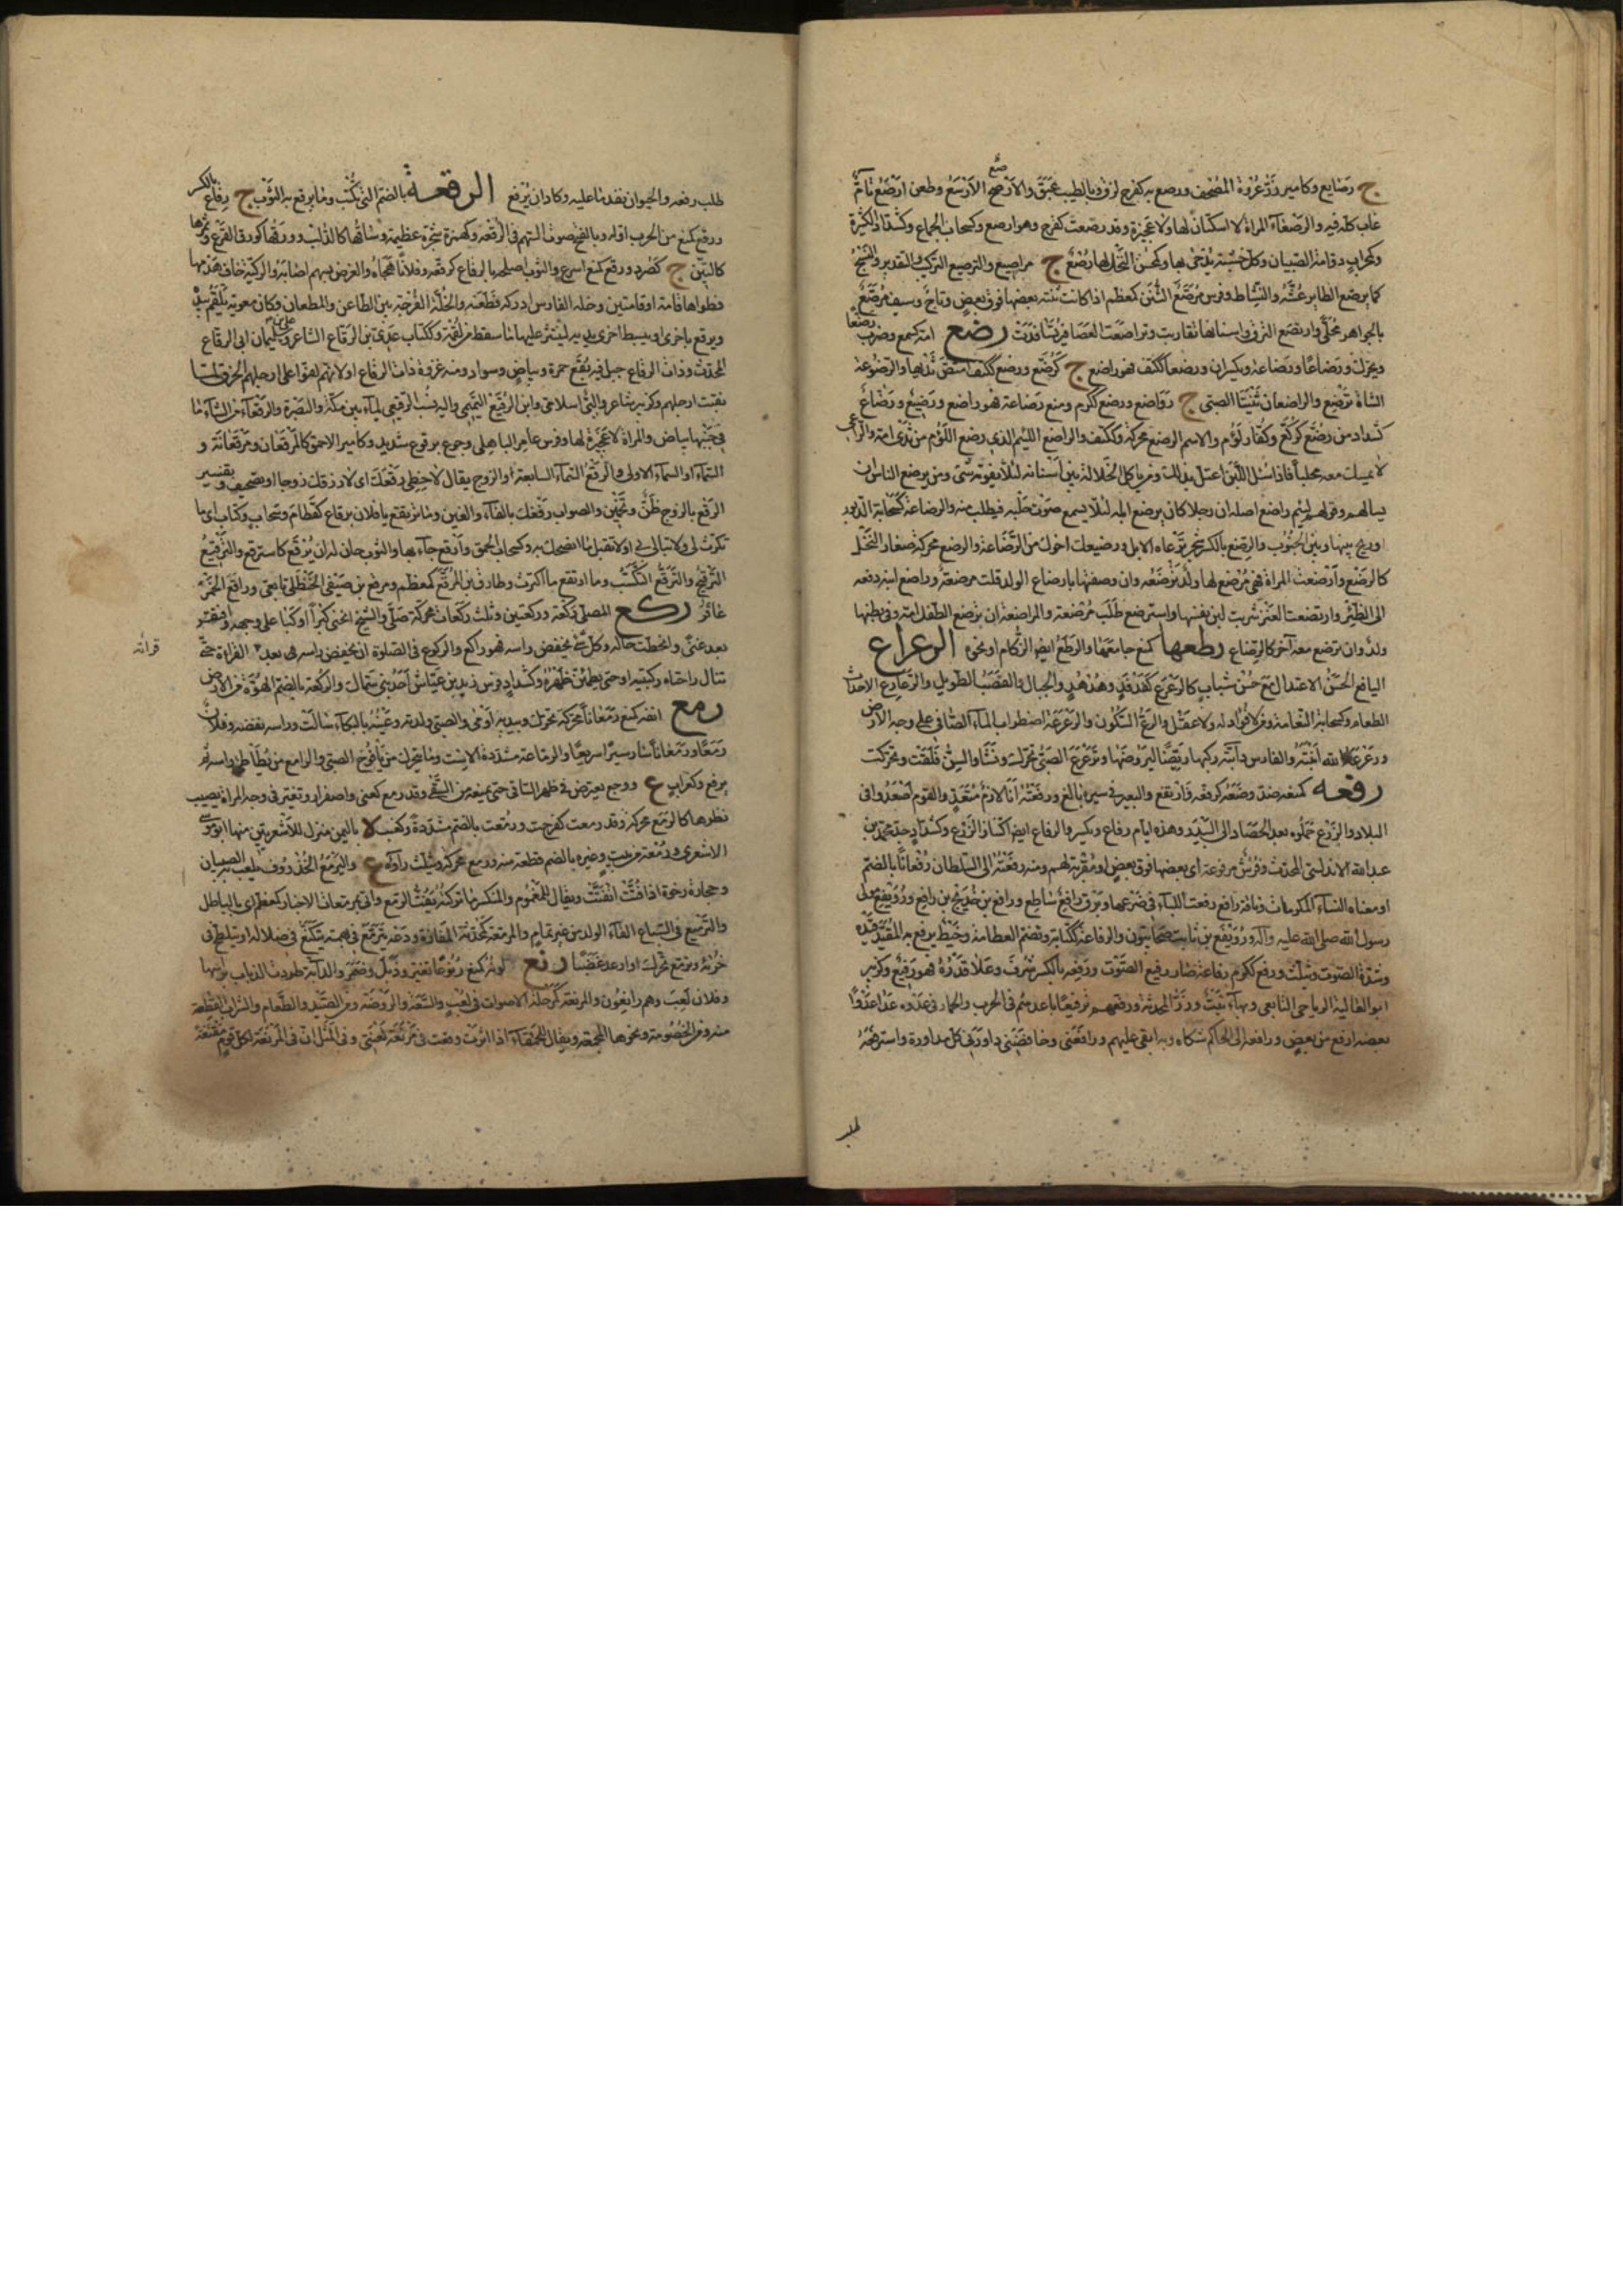 ج رصايع وكامير زر عروة المصحف ورصع به كفرح لزق وبالطيب عبق والارصع الارسح وطعن ارصع تام
غاب كله فيه والرصعاء المراة لا اسكتان لها ولا عجيزة وقد رصعت كفرح وهو ارصع وكسحاب الجماع وكشداد الكثيرة
وكمحراب دوامة الصبيان وكل خشبة يدحى بها
كما يرصع الطاير عشه والنشاط وفرس مرصع الثنن كمعظم اذا كانت ثننه بعضها فوق بعض وتاج وسيف مرصع
بالجواهر محلى وارتصع التزق واسنانها تقاربت وتراصعت العصافير تسافدت رضع امه كسمع وضرب رضعا
ويحرك ورضاعا ورضاعة ويكسران ورضعا ككتف فهو راضع ج كركع ورضع ككتف
الشاة ترضيع والراضعتان ثنيتا الصبى ج رواضع ورضع ككرم ومنع رضاعة فهو راضع ورضيع ورضاع
كشداد من رضع كركع وكفار لؤم والاسم الرضع محركة وككتف والراضع اللئيم الذى رضع اللؤم من ثدى امه والراعى
لا يمسك معه محلبا فاذا سئل اللبن اعتل بذلك ومن ياكل الخلالة من بين اسنانه لئلا يفوته شئ ومن يرضع الناس اى
يسالهم وقولهم لئيم راضع اصله ان رجلا كان يرضع ابله لئلا يسمع صوت حلبه فيطلب منه والرضاعة كسحابة الدبور
او ريح بينها وبين الجنوب والرضع بالكسر شجر ترعاه الابل ورضيعك اخوك من الرضاعة والرضع محركة صغار النخل
كالرضع وارضعت المراة فهى مرضع لها ولد ترضعه وان وصفتها بارضاع الولد قلت مرضعة وراضع ابنه دفعه
الى الظئر وارتضعت العنز شربت لبن نفسها واسترضع طلب مرضعة والمراضعة ان يرضع الطفل امه وفى بطنها
ولد وان يرضع معه آخر كالرضاع رطعها كمنع جامعها والرطع ايض الزكام او نحوه الرعراع
اليافع الحسن الاعتدال مع حسن شباب كالرعرع كفدفد وهدهد والجبان والقصب الطويل والرعارع الاحداث
الطعام وكسحابة النعامة ومن لا فؤاد له ولا عقل والرع السكون والرعرعة اضطراب الماء الصافى على وجه الارض
ورعرعه الله انبته والفارس دابته ركبها ليروضها وترعرع الصبى تحرك ونشا والسن قلقت وتحركت
رفعه كمنعه ضد وضعه كرفعه فارتفع والبعير فى سيره بالغ ورفعته انا لازم متعد والقوم اصعدوا فى
البلاد والزرع حملوه بعد الحصاد الى البيدر وهذه ايام رفاع ويكسر والرفاع ايض اكتناز الزرع وكشداد جد محمد بن
عبدالله الاندلسى المحدث وفرش مرفوعة اى بعضها فوق بعض او مقربة لهم ومنه رفعته الى السلطان رفعانا بالضم
او معناه النساء المكرمات وناقة رافع رفعت اللباء فى ضرعها وبرق رافع ساطع ورافع بن خديج بن رافع ورويفع مولى
رسول الله صلى الله عليه وآله ورويفع بن ثابت صحابيون والرفاعة ككتابة وتضم العظامة وخيط يرفع به المقيد قيده
وشدة الصوت ويثلث ورفع ككرم رفاعة صار رفيع الصوت ورفعه بالكسر شرف وعلا قدره فهو رفيع وكزبير
ابو العالية الرياحى التابعى وبهاء بنت وزر المحدثة ورفعهم ترفيعا باعدهم فى الحرب والحمار فى عدوه عدا عدوا
بعضه ارفع من بعض ورافعه الى الحاكم شكاه وبه ابقى عليهم ورافعنى وخافضنى داورنى كل مداورة واسترفعه
طلب
طلب رفعه والخوان نفد ما عليه وكاد ان يرفع الرقعة بالضم التى تكتب وما يرقع به الثوب ج رقاع بالكسر
ورقع كمنع من الجرب اوله وبالفتح صوت السهم فى الرقعة وكهمزة شجرة عظيمة وساقها كالدلب وورقها كورق القرع وثمرها
كالتين ج كصرد ورقع كمنع اسرع والثوب اصلحه بالرقاع كرقعه وفلانا هجاه والغرض بسهم اصابه والركية خاف هدمها
فطواها قامة او قامتين وخله الفارس ادركه فطعنه والخلة الفرجة بين الطاعن والمطعان وكان معوية يلقم بيد
ويرقع باخرى اى يبسط احدى يديه لينتثر عليها ما سقط من لقمه وككتاب عدى بن الرقاع الشاعر وعلى بن سليمان ابى الرقاع
المحدث وذات الرقاع جبل فيه بقع حمرة وبياض وسواد ومنه غزوة ذات الرقاع او لانهم لفوا على ارجلهم الخرق لما
نقبت ارجلهم وكزبير شاعر والبى اسلامى وابن الرقيع التميمى واليه نسب الرقيعى لماء بين مكة والبصرة والرقعاء من الشاء ما
فى جنبها بياض والمراة لا عجيزة لها وفرس عامر الباهلى وجوع يرقوع شديد وكامير الاحمق كالمرقعان ومرقعانة و
السماء او السماء الاولى والرقع السماء السابعة او الزوج يقال لا حظى رقعك اى لا رزقك زوجا او تصحيف وتفسير
الرقع بالزوج ظن وتخمين والصواب رفغك بالفاء والغين وما ترتقع يا فلان برقاع كقطام وسحاب وكتاب اى ما
تكترث لى ولا تبالى بى او لا تقبل مما انصحك به وكسحابة الحمق وارقع جاء بها والثوب حان له ان يرقع كاسترقع والترقيع
الترقيح والترقع التكسب وما ارتقع ما اكترث وطارق بن المرقع كمعظم ومرقع بن صيفى الحنظلى تابعى وراقع الخمر
عاقر ركع المصلى ركعة وركعتين وثلث ركعات محركة صلى والشيخ انحنى كبرا او كبا على وجهه وافتقر
بعد غنى وانحطت حاله وكل شئ يخفض راسه فهو راكع والركوع فى الصلوة ان يخفض راسه بعد القراءة حتى
تنال راحتاه ركبتيه او حتى يطمئن ظهره وكشداد فرس زيد بن عباس احد بنى سمال والركعة بالضم الهوة من الارض
رمع انفه كمنع رمعانا محركة تحرك وبيديه اومى والصبى ولدته وعينه بالبكاء سالت وراسه نفضه وفلان
رمعا ورمعانا سار سيرا سريعا والرماعة مشددة الاست وما يتحرك من يافوخ الصبى والرامع من يطاطئ راسه ثم
يرفع وكغراب ع ووجع يعترض فى ظهر الساقى حتى يمنعه من السقى وقد رمع كعنى واصفرار وتغير فى وجه المراة يصيب
نظرها كالرمع محركة وقد رمعت كفرحت ورمعت بالضم مشددة وكعنب باليمن منزل للاشعريين منها ابو موسى
الاشعرى ورمعة من نبت وغيره بالضم قطعة منه ورمع محركة ويثلث راؤه ع واليرمع الخذروف يلعب به الصبيان
وحجارة رخوة اذا فتت انفتت ويقال للمغموم والمنكسر تركته يفت اليرمع واتى بمرمعات الاخبار كمعظم اى بالباطل
والترميع فى السباع القاء الولد من غير تمام والمرمعة كمحدثة المفازة ودعه يترمع فى طمته يتسكع فى ضلاله او يتلطخ فى
خرئه وترمع تحرك او ارعد غضبا رنع لونه كمنع رنوعا تغير وذبل وضمر والدابة طردت الذباب براسها
وفلان لعب وهم رانعون والمرنعة كمرحلة الاصوات فى لعب والسعة والروضة ومن الصيد والطعام والشراب القطعة
منه ومن الخصومة ونحوها الجمعة ويقال للحمقاء اذا اثرت وقعت فى مرنعة فعيثى وفى المثل ان فى المرنعة لكل قوم مقنعة
قرائه